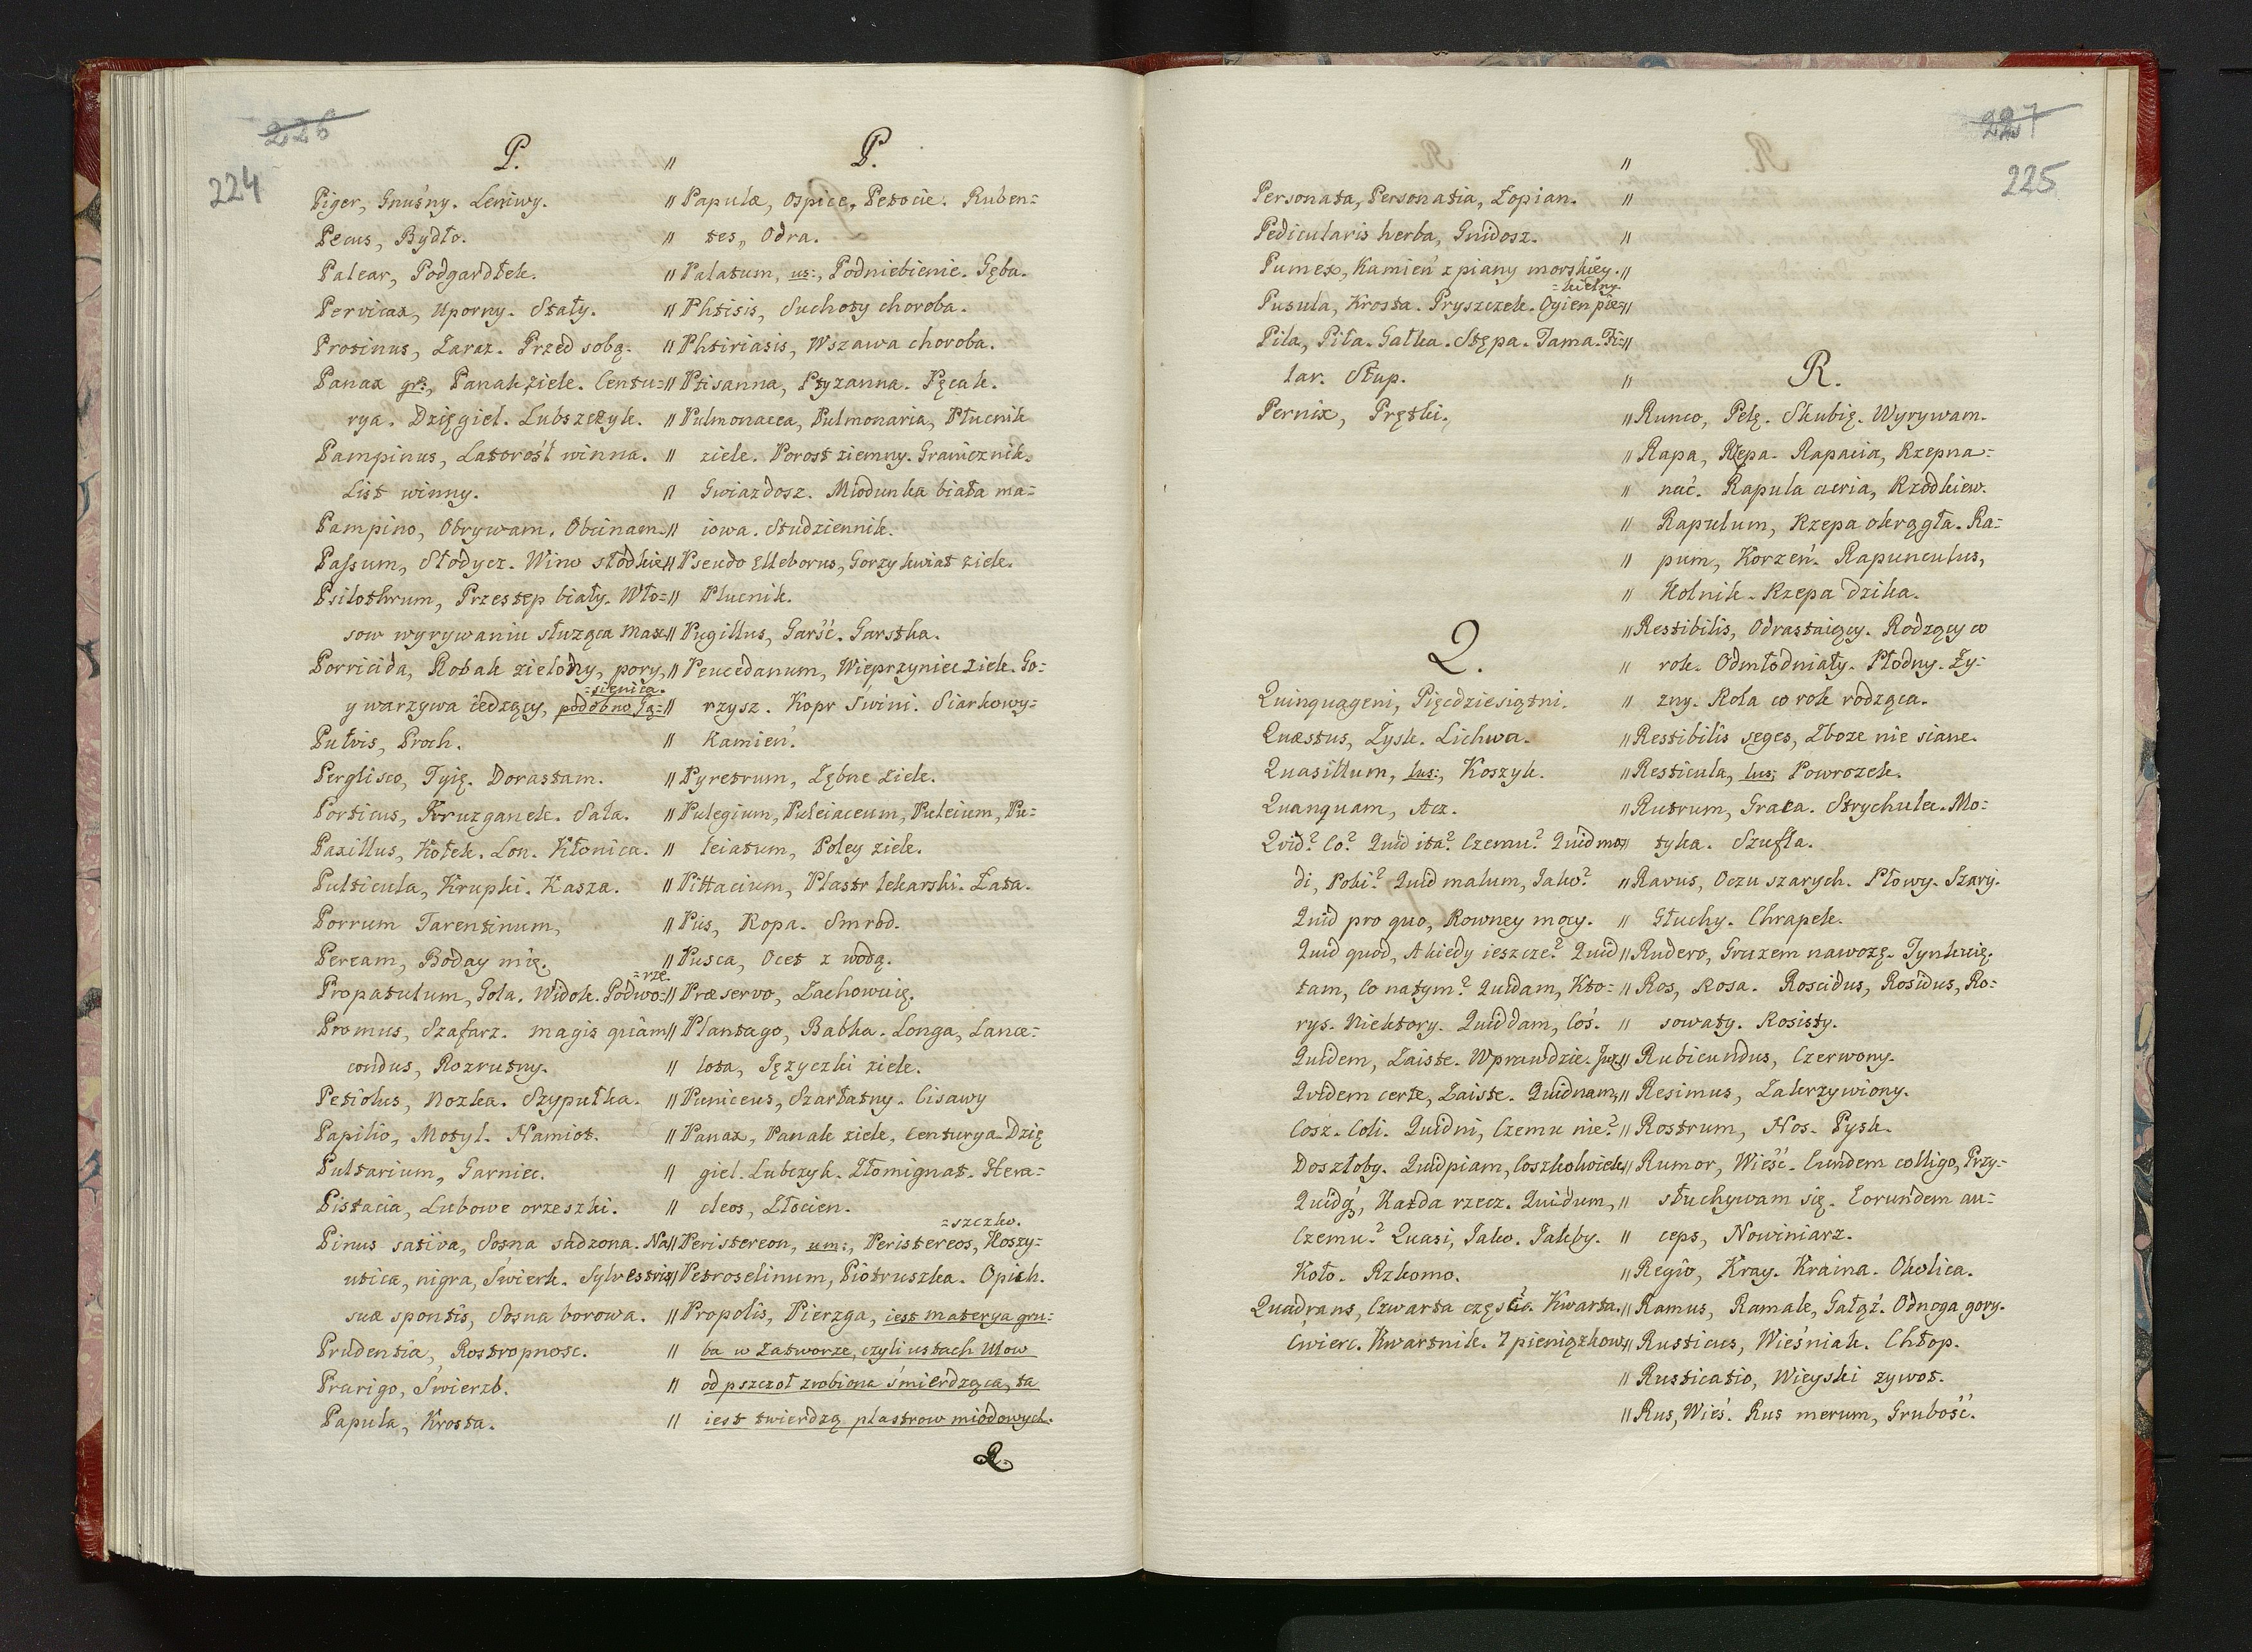 226
224
P.
Piger, Gnuśny. Leniwy.
Pecus, Bydło.
Palear, Podgardłek.
Pervicax, Uporny. Stały.
Protinus, Zaraz. Przed sobą.
Panax gr:, Panak ziele. Centu=
rya. Dzięgiel. Lubszczyk.
Pampinus, Latorośl winna.
List winny.
Pampino, Obrywam. Obcinam.
Passum, Słodycz. Wino słodkie
Psilothrum, Przestęp biały. Wło=
sow wyrywaniu służąca maść
Porricida, Robak zielony, pory,
y warzywa iedzący, podobno Gą=
=sienica.
Pulvis, Proch.
Perglisco, Tyię. Dorastam.
Porticus, Kruzganek. Sala.
Paxillus, Kołek. Lon. Kłonica.
Pulticula, Krupki. Kasza.
Porrum Tarentinum,
Peream, Boday mię.
Propatulum, Gola. Widok. Podwo=
=rze.
Promus, Szafarz. magis quàm
condus, Rozrutny.
Petiolus, Nozka. Szypułka.
Papilio, Motyl. Namiot.
Pultarium, Garniec.
Pistacia, Lubowe orzeszki.
Pinus sativa, Sosna sadzona. Na
utica, nigra, Świerk. Sylvestris
suæ spontis, Sosna borowa.
Prudentia, Rostropnosc.
Prurigo, Świerzb.
Papula, Krosta.
P.
Papulæ, Ospice, Petocie. Ruben=
tes, Odra.
Palatum, us:, Podniebienie. Gęba.
Phtisis, Suchoty choroba.
Phtiriasis, Wszawa choroba.
Ptisanna, Ptyzanna. Pęcak.
Pulmonacea, Pulmonaria, Płucnik
ziele. Porost ziemny. Granicznik.
Gwiazdosz. Miodunka biała ma=
iowa. Studziennik.
Pseudo Elleborus, Gorzykwiat ziele.
Plucnik.
Pugillus, Garść. Garstka.
Peucedanum, Wieprzyniec ziele. Go=
rzysz. Kopr świni. Siarkowy=
Kamień.
Pyretrum, Zębne ziele.
Pulegium, Puleiaceum, Puleium, Pu=
leiatum, Poley ziele.
Pittacium, Plastr lekarski. Łata.
Pus, Ropa. Smrod.
Pusca, Ocet z wodą.
Præservo, Zachowuię.
Plantago, Babka. Longa, Lance=
lota, Języczki ziele.
Puniceus, Szarłatny. Cisawy
Panax, Panak ziele, Centurya. Dzię
giel. Lubczyk. Złomignat. Hera=
cleos, Złocien.
Peristereon, um:, Peristereos, Koszy=
=szczko.
Petroselinum, Piotruszka. Opich.
Propolis, Pierzga, iest materya gru=
ba w Zatworze, czyli ustach Ulow
od pszczoł zrobiona śmierdząca, ta
iest twierdzą plastrow miodowych.
Q.
227
225
Personata, Personatia, Łopian.
Pedicularis herba, Gnidosz.
Pumex, Kamień z piany morskiey.
Pusula, Krosta. Pryszczek. Ogien pie=
=kielny
Pila, Piła. Gałka. Stępa. Tama. Fi=
lar. Słup.
Pernix, Prętki.
Q.
Quinquageni, Pięcdziesiątni.
Quæstus, Zysk. Lichwa.
Quasillum, lus:, Koszyk.
Quanquam, Acz.
Qvid? Co? Quid ita? Czemu? Quid mo=
di, Poki? Quid malum, Jako?
Quid pro quo, Rowney mocy.
Quid quod, A kiedy ieszcze? Quid
tam, Co natym? Quidam, Kto=
rys. Niektory. Quiddam, Coś.
Quidem, Zaiste. Wprawdzie. Juz
Qvidem certe, Zaiste. Quidnam,
Cosz. Coli. Quidni, Czemu nie?
Doszłoby. Quidpiam, Coszkolwiek
Quidq́, Każda rzecz. Quidum,
Czemu? Quasi, Jako. Jakby.
Koło. Rzkomo.
Quadrans, Czwarta częśćć. Kwarta.
Cwierc. Kwartnik. 7 pieniązkow
R.
Runco, Pelę. Skubię. Wyrywam.
Rapa, Rzepa. Rapacia, Rzepna=
nać. Rapula acria, Rzodkiew.
Rapulum, Rzepa okrągła. Ra=
pum, Korzeń. Rapunculus,
Kolnik. Rzepa dzika.
Restibilis, Odrastaiący. Rodzący co
rok. Odmłodniały. Płodny. Ży=
zny. Rola co rok rodząca.
Restibilis seges, Zboze nie siane.
Resticula, lus; Powrozek.
Rutrum, Graca. Strychulec. Mo=
tyka. Szufla.
Ravus, Oczu szarych. Płowy. Szary.
Głuchy. Chrapek.
Rudero, Gruzem nawozę. Tynkuię.
Ros, Rosa. Roscidus, Rosidus, Ro=
sowaty. Rosisty.
Rubicundus, Czerwony.
Resimus, Zakrzywiony.
Rostrum, Nos. Pysk.
Rumor, Wieść. Eundem colligo, Przy=
słuchywam się. Eorundem au=
ceps, Nowiniarz.
Regio, Kray. Kraina. Okolica.
Ramus, Ramale, Gałąź. Odnoga gory.
Rusticus, Wieśniak. Chłop.
Rusticatio, Wieyski zywot.
Rus, Wieś. Rus merum, Grubość.